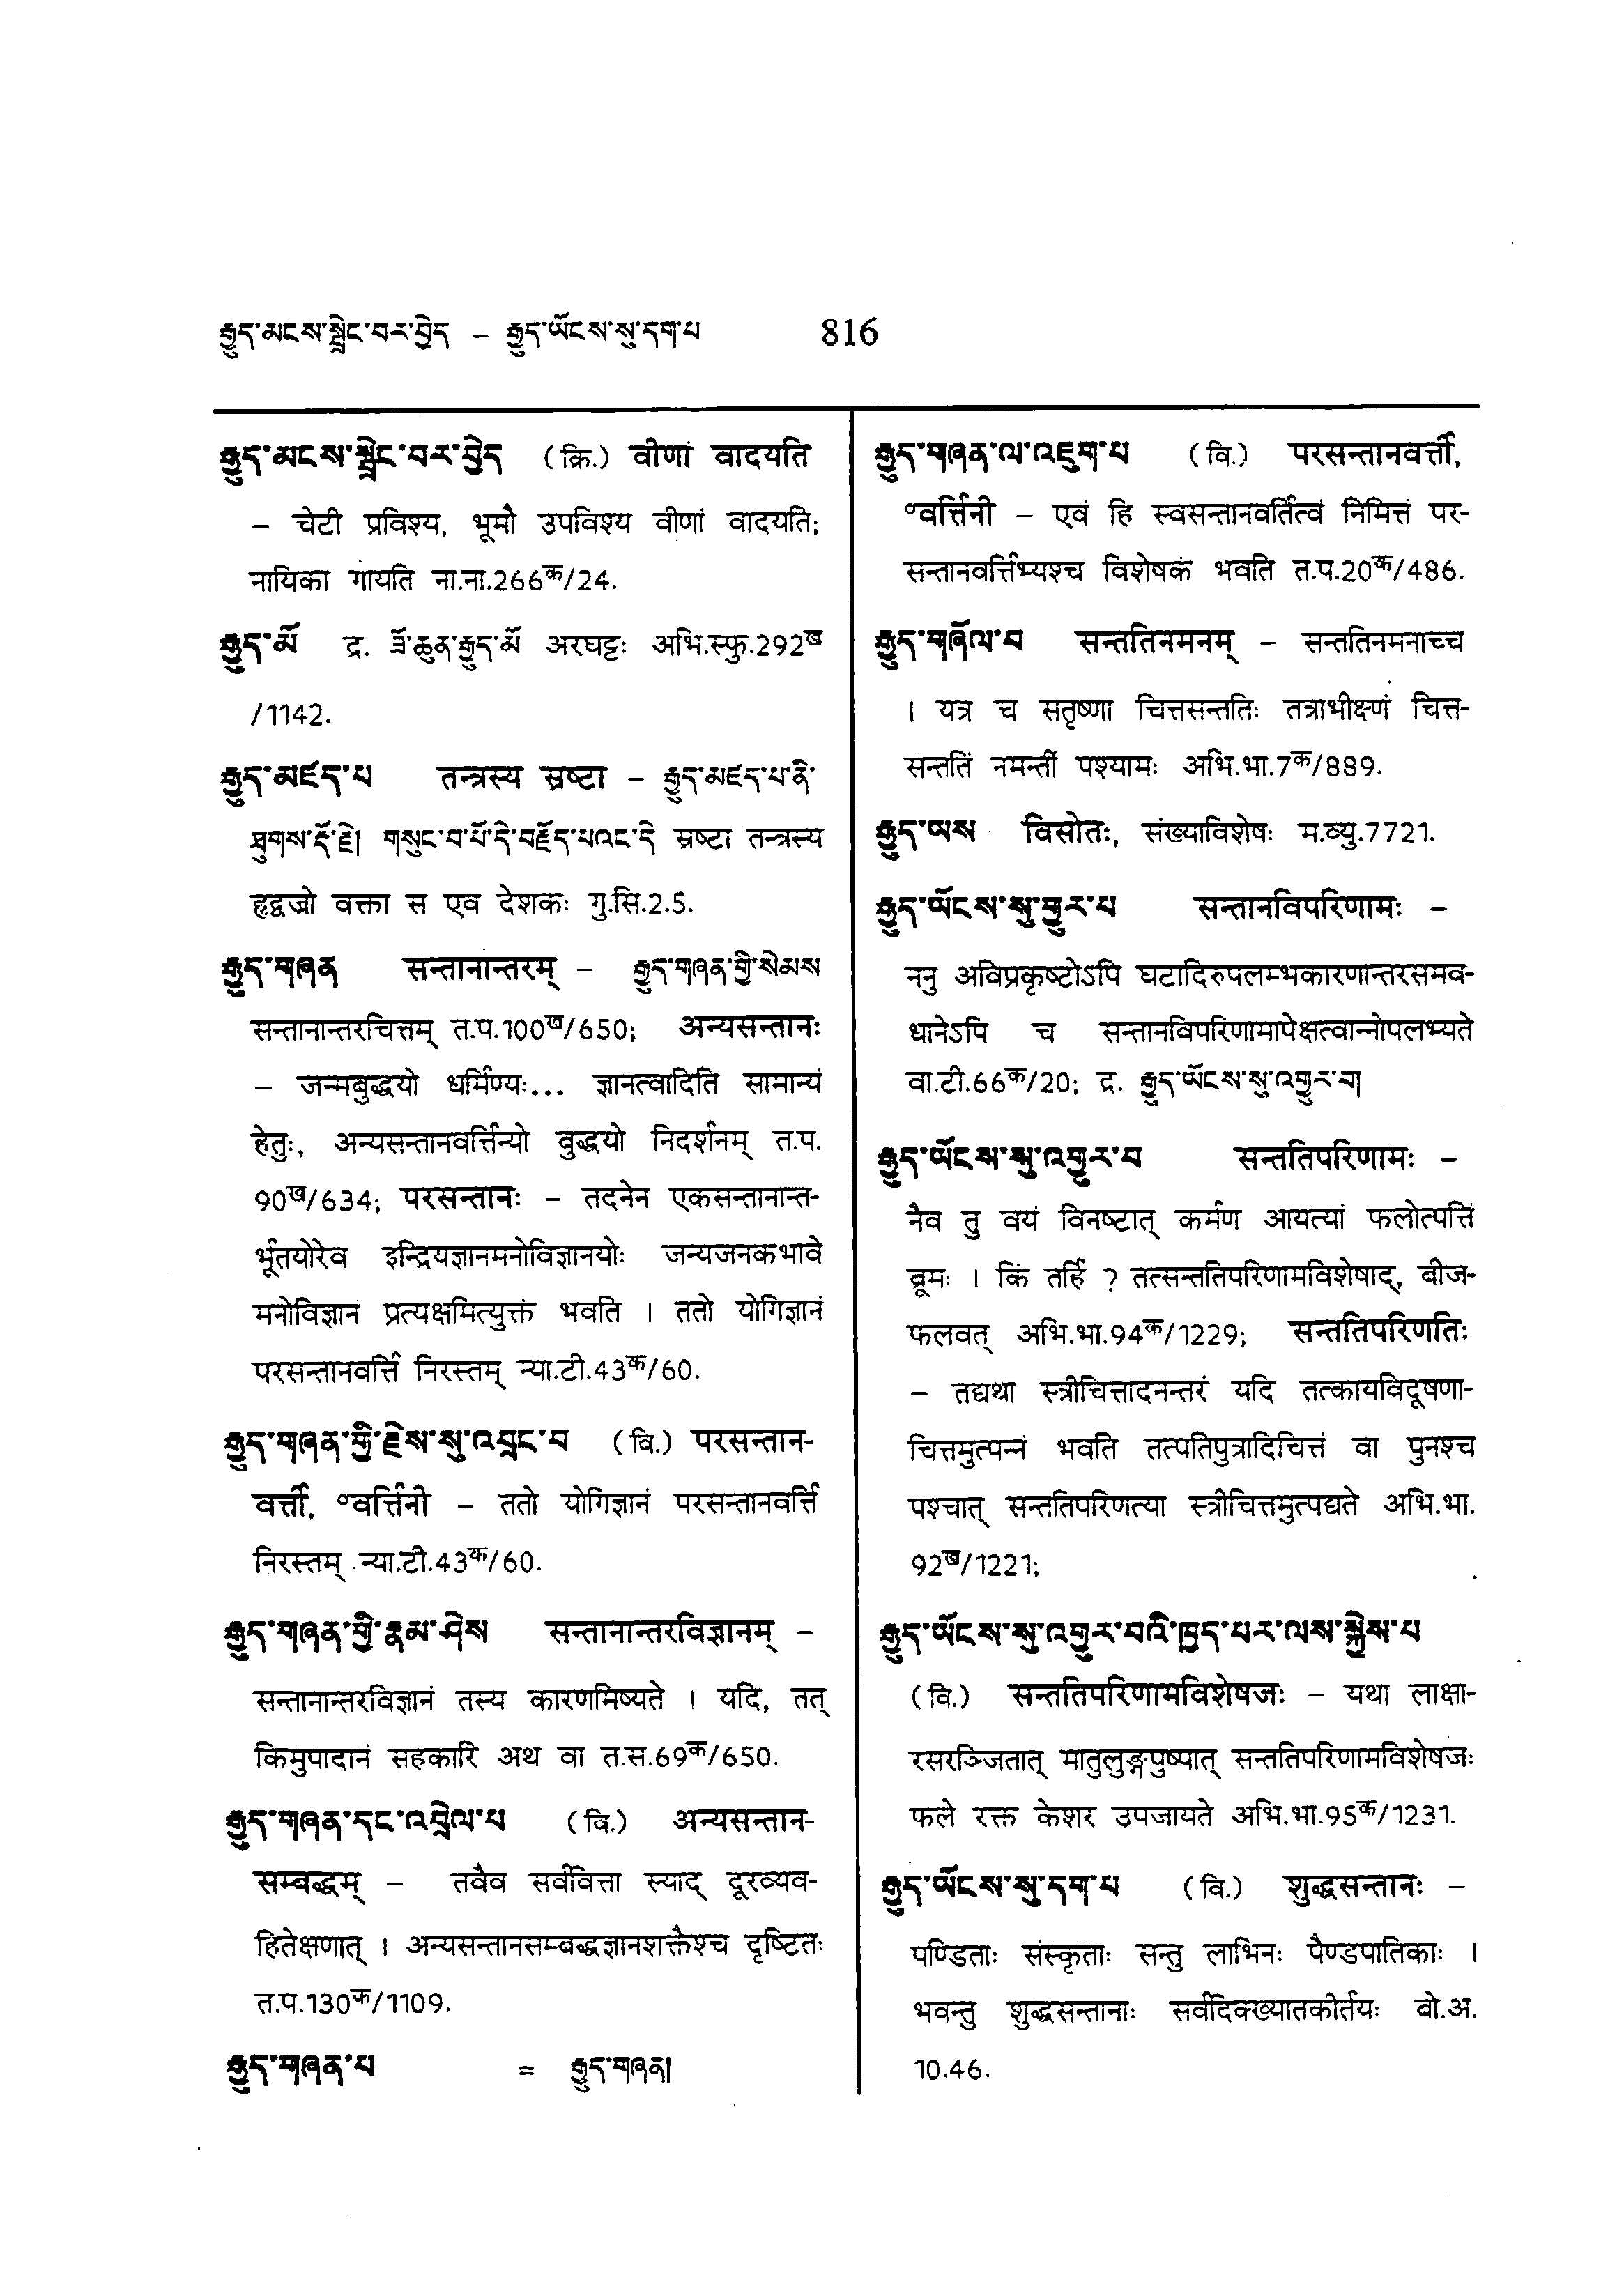 རྒྱུད་མངས་སྒྲེང་བར་བྱེད – རྒྱུད་ཡོངས་སུ་དག་པ 816
རྒྱུད་མངས་སྒྲེང་བར་བྱེད (क्रि.) वीणां वादयति
– चेटी प्रविश्य, भूमौ उपविश्य वीणां वादयति;
नायिका गायति ना.ना.266क/24.
རྒྱུད་མོ द्र. ཟོ་ཆུན་རྒྱུད་མོ अरघट्टः अभि.स्फु.292ख
/1142.
རྒྱུད་མཛད་པ तन्त्रस्य स्रष्टा – རྒྱུད་མཛད་པ་ནི་
ཐུགས་རྡོ་རྗེ། གསུང་བ་པོ་དེ་བརྗོད་པའང་དེ स्रष्टा तन्त्रस्य
हृद्वज्रो वक्ता स एव देशकः गु.सि.2.5.
རྒྱུད་གཞན सन्तानान्तरम् – རྒྱུད་གཞན་གྱི་སེམས
सन्तानान्तरचित्तम् त.प.100ख/650; अन्यसन्तानः
– जन्मबुद्धयो धर्मिण्यः... ज्ञानत्वादिति सामान्यं
हेतुः, अन्यसन्तानवर्त्तिन्यो बुद्धयो निदर्शनम् त.प.
90ख/634; परसन्तानः – तदनेन एकसन्तानान्त-
र्भूतयोरेव इन्द्रियज्ञानमनोविज्ञानयोः जन्यजनकभावे
मनोविज्ञानं प्रत्यक्षमित्युक्तं भवति । ततो योगिज्ञानं
परसन्तानवर्त्ति निरस्तम् न्या.टी.43क/60.
རྒྱུད་གཞན་གྱི་རྗེས་སུ་འབྲང་བ (वि.) परसन्तान-
वर्त्ती, ॰वर्त्तिनी – ततो योगिज्ञानं परसन्तानवर्त्ति
निरस्तम् न्या.टी.43क/60.
རྒྱུད་གཞན་གྱི་རྣམ་ཤེས सन्तानान्तरविज्ञानम् –
सन्तानान्तरविज्ञानं तस्य कारणमिष्यते । यदि, तत्
किमुपादानं सहकारि अथ वा त.स.69क/650.
རྒྱུད་གཞན་དང་འབྲེལ་པ (वि.) अन्यसन्तान-
सम्बद्धम् – तवैव सर्ववित्ता स्याद् दूरव्यव-
हितेक्षणात् । अन्यसन्तानसम्बद्धज्ञानशक्तैश्च दृष्टितः
त.प.130क/1109.
རྒྱུད་གཞན་པ = རྒྱུད་གཞན།
རྒྱུད་གཞན་ལ་འཇུག་པ (वि.) परसन्तानवर्त्ती,
॰वर्त्तिनी – एवं हि स्वसन्तानवर्तित्वं निमित्तं पर-
सन्तानवर्त्तिभ्यश्च विशेषकं भवति त.प.20क/486.
རྒྱུད་གཞོལ་བ सन्ततिनमनम् – सन्ततिनमनाच्च
। यत्र च सतृष्णा चित्तसन्ततिः तत्राभीक्ष्णं चित्त-
सन्ततिं नमन्तीं पश्यामः अभि.भा.7क/889.
རྒྱུད་ལས विसोतः, संख्याविशेषः म.व्यु.7721.
རྒྱུད་ཡོངས་སུ་གྱུར་པ सन्तानविपरिणामः –
ननु अविप्रकृष्टोऽपि घटादिरुपलम्भकारणान्तरसमव-
धानेऽपि च सन्तानविपरिणामापेक्षत्वान्नोपलभ्यते
वा.टी.66क/20; द्र. རྒྱུད་ཡོངས་སུ་འགྱུར་བ།
རྒྱུད་ཡོངས་སུ་འགྱུར་བ सन्ततिपरिणामः –
नैव तु वयं विनष्टात् कर्मण आयत्यां फलोत्पत्तिं
ब्रूमः । किं तर्हि ? तत्सन्ततिपरिणामविशेषाद्, बीज-
फलवत् अभि.भा.94क/1229; सन्ततिपरिणतिः
– तद्यथा स्त्रीचित्तादनन्तरं यदि तत्कायविदूषणा-
चित्तमुत्पन्नं भवति तत्पतिपुत्रादिचित्तं वा पुनश्च
पश्चात् सन्ततिपरिणत्या स्त्रीचित्तमुत्पद्यते अभि.भा.
92ख/1221;
རྒྱུད་ཡོངས་སུ་འགྱུར་བའི་ཁྱད་པར་ལས་སྐྱེས་པ
(वि.) सन्ततिपरिणामविशेषजः – यथा लाक्षा-
रसरञ्जितात् मातुलुङ्गपुष्पात् सन्ततिपरिणामविशेषजः
फले रक्त केशर उपजायते अभि.भा.95क/1231.
རྒྱུད་ཡོངས་སུ་དག་པ (वि.) शुद्धसन्तानः –
पण्डिताः संस्कृताः सन्तु लाभिनः पैण्डपातिकाः ।
भवन्तु शुद्धसन्तानाः सर्वदिक्ख्यातकीर्तयः बो.अ.
10.46.